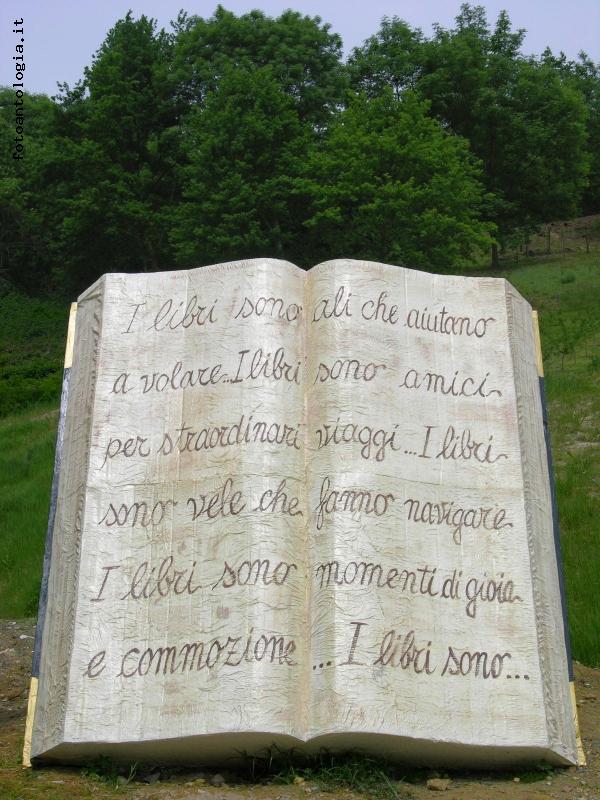 fotoantologia.it
I libri sono ali che aiutano
a volare...I libri sono amici
per straordinari viaggi...I libri
sono vele che fanno navigare
I libri sono momenti di gioia
e commozione ... I libri sono...